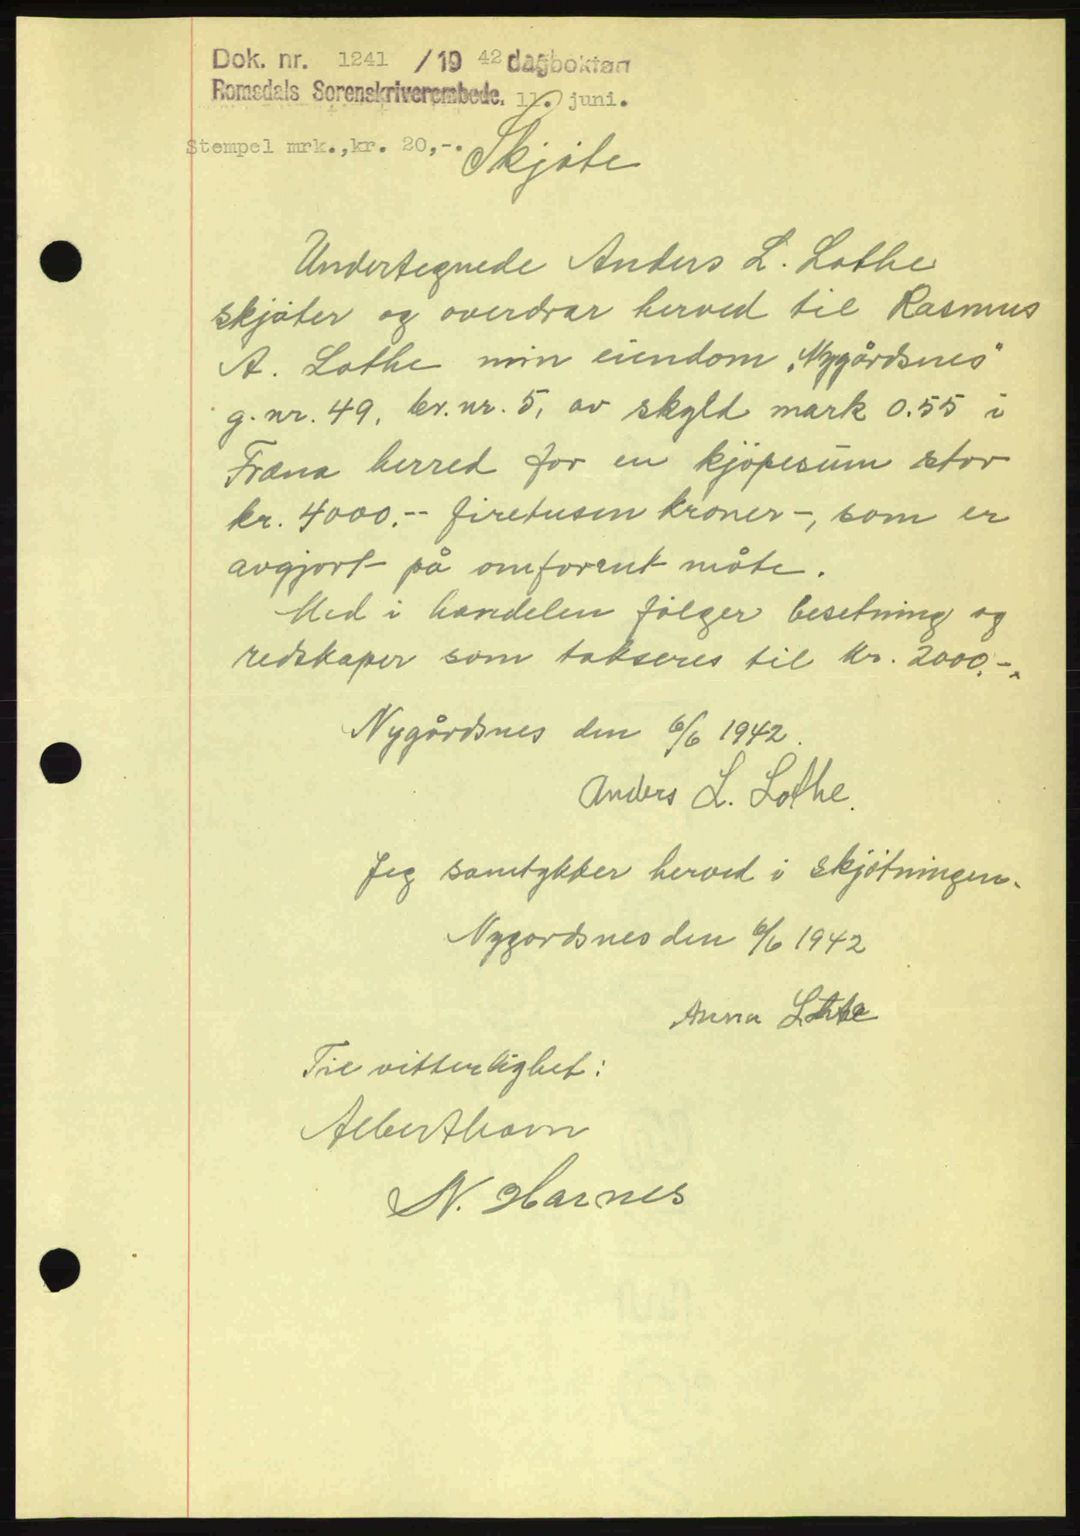 Dok. nr. 1241 /19 42 dagboktatt
Romsdals Sorenskriverembede, 11. juni.
Stempel mrk.,kr. 20,-.
Skjøte
Undertegnede Anders L. Lothe
skjøter og overdrar herved til Rasmus
A. Lothe min eiendom „Nygårdsnes"
g. nr. 49, br. nr. 5, av skyld mark 0.55 i
Fræna herred for en kjøpesum stor
kr. 4000.-- firetusen kroner -, som er
avgjort på omforent måte.
Med i handelen følger besetning og
redskaper som takseres til kr. 2000.-.
Nygårdsnes den 6/6 1942.
Anders L. Lothe.
Jeg samtykker herved i skjøtningen.
Nygardsnes den 6/6 1942
Anna Lothe
Til vitterlighet:
Albert Havn
N. Harnes